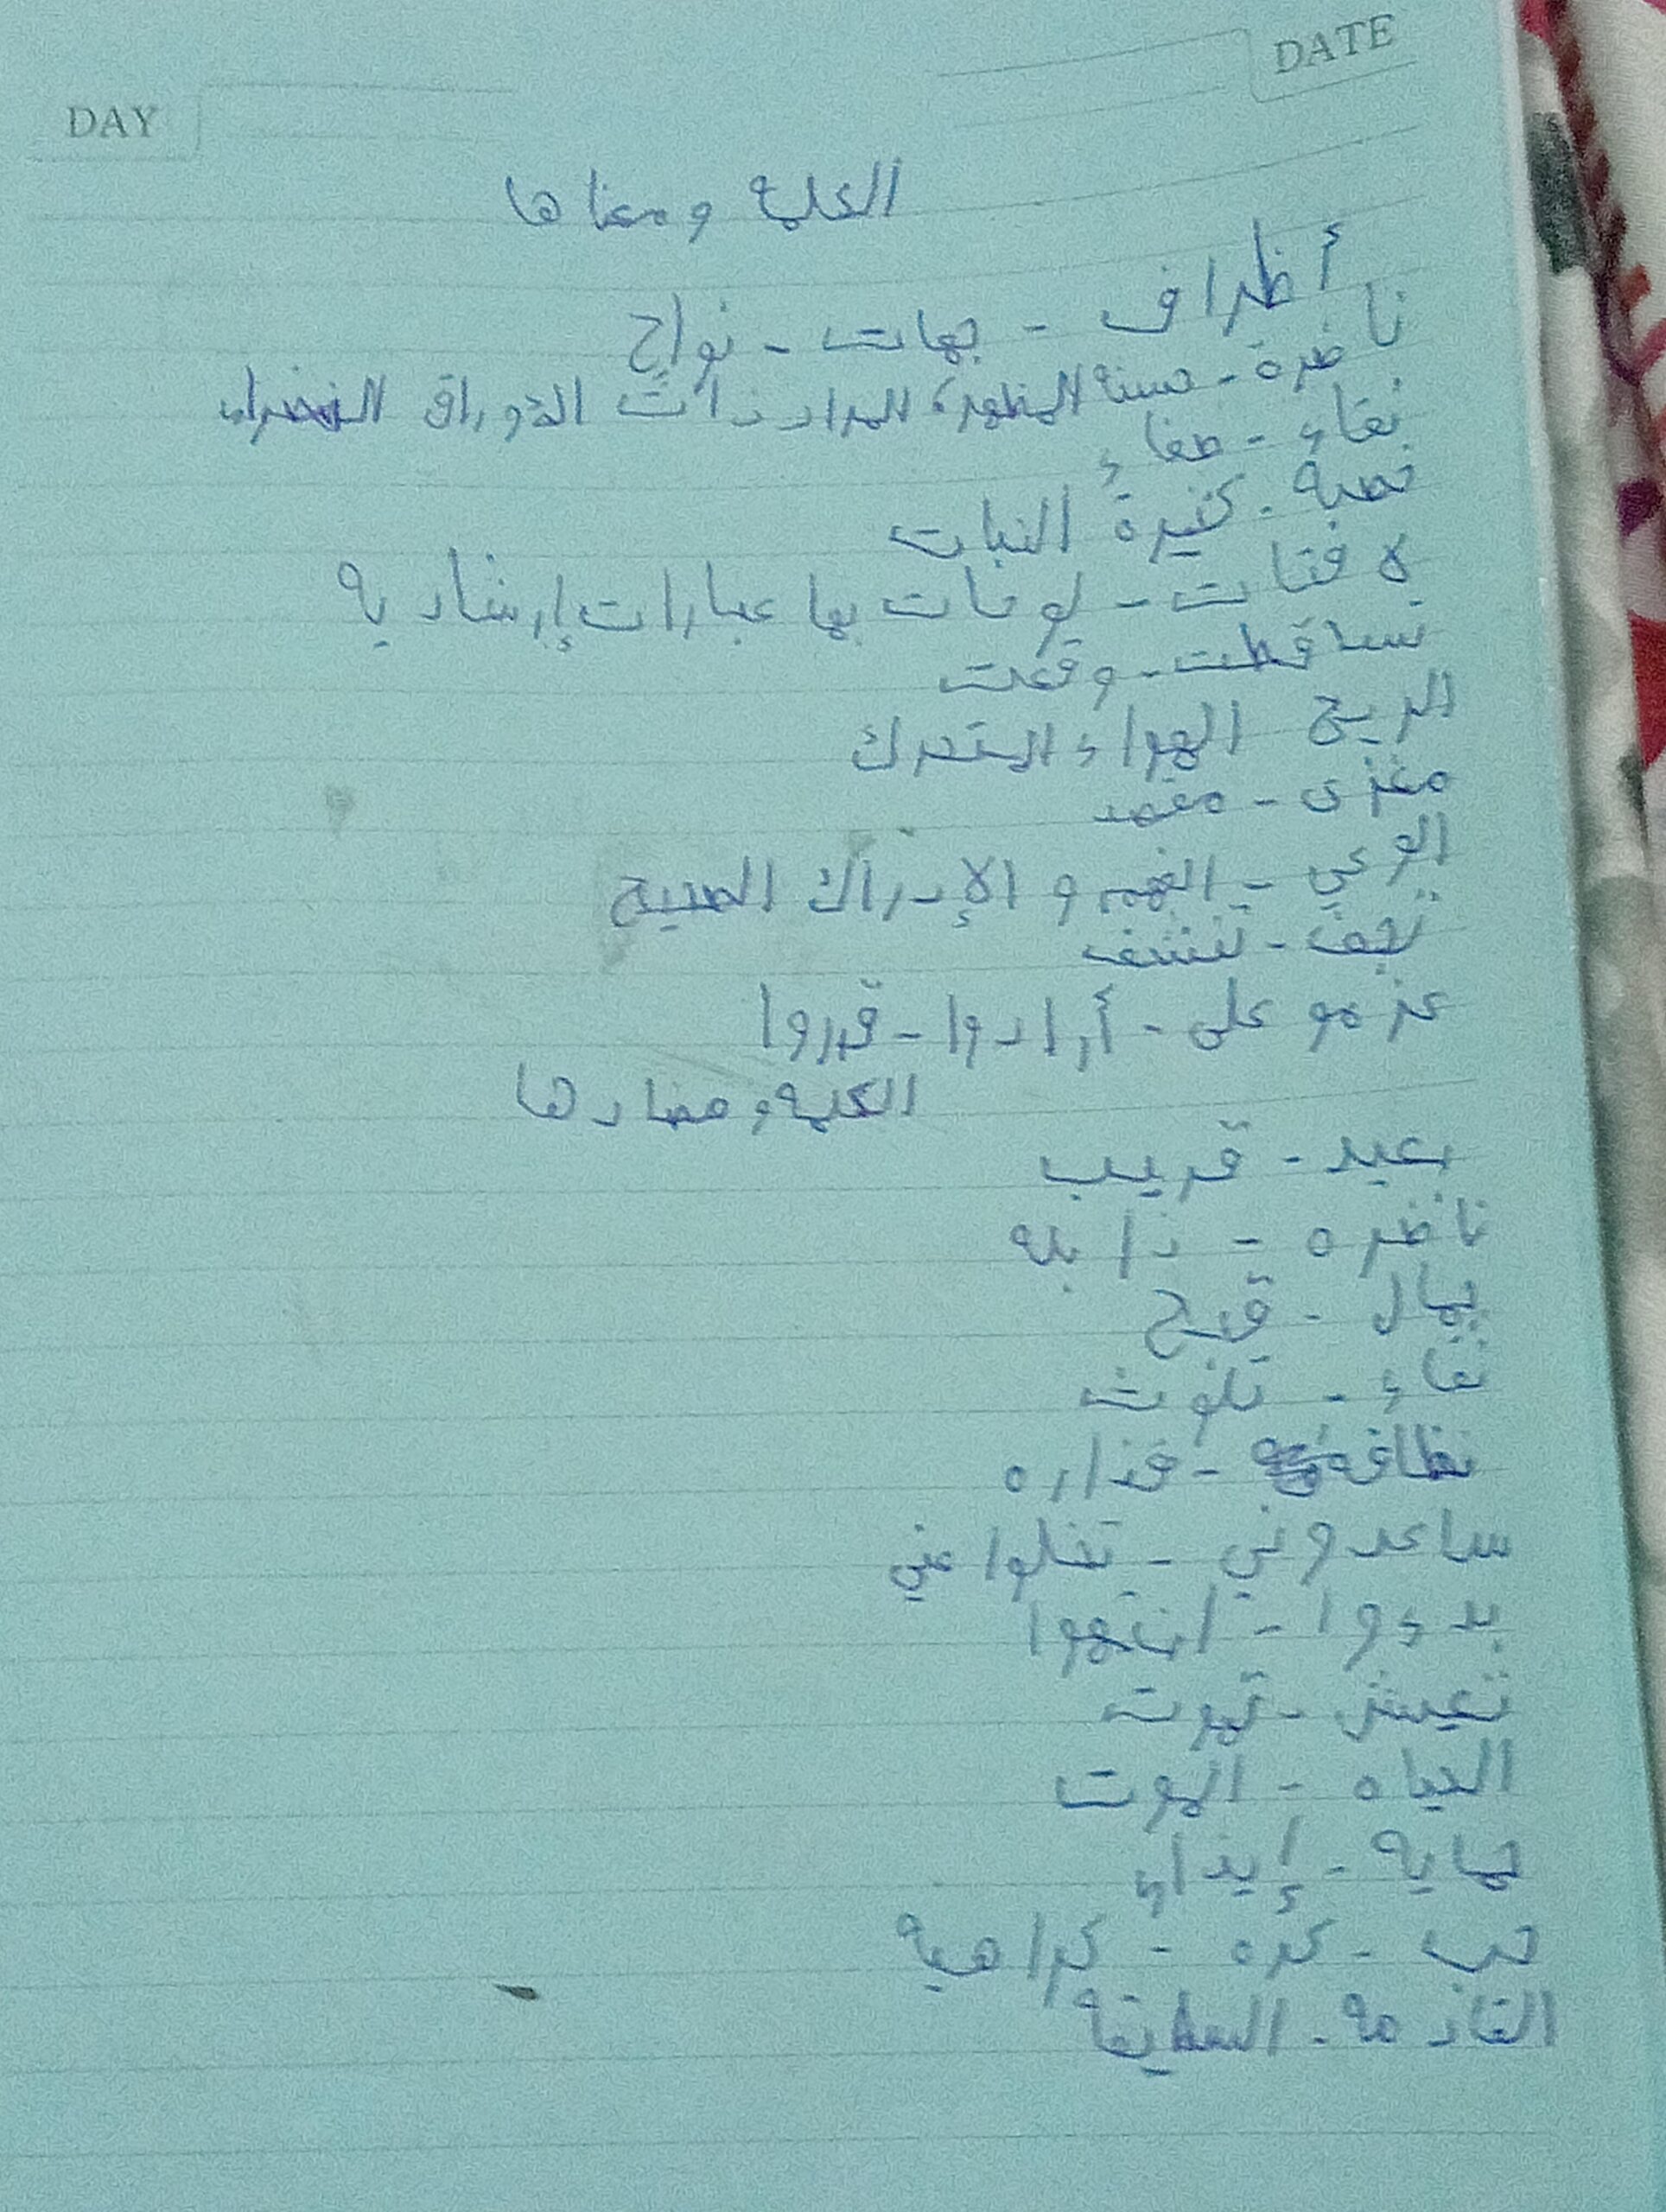 DAY
DATE
الكلمة ومعناها
أطراف - جهات - نواح
ناضرة - حسنة المظهر، المراد ذات الأوراق الخضراء
نقاء - صفاء
خصبه - كثيرة النبات
لافتات - لوحات بها عبارات إرشاديه
تساقطت - وقعت
الريح الهواء المتحرك
مغزى - مقصد
الوعي - الفهم والإدراك الصحيح
تجف - تنشف
عزموو على - أرادوا - قرروا
الكلمة ومضادها
بعيد - قريب
ناضره - ذابله
جمال - قبح
نقاء - تلوث
نظافه - قذاره
ساعدوني - تخلوا عني
بدءوا - انتهوا
تعيش - تموت
الحياه - الموت
حمايه - إيذاء
حب - كره - كراهيه
القادمه - السابقة